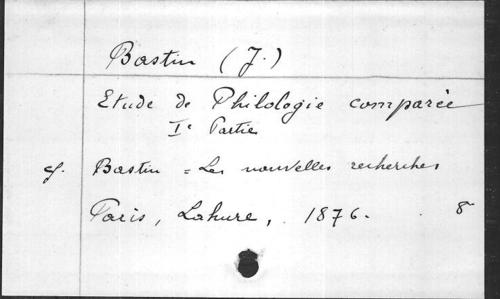 Bastin (J.)
Etude de Philologie comparée
Iᵉ Partie
cf. Bastin = Les nouvelles recherches
Paris, Lahure, . 1876. . 8°